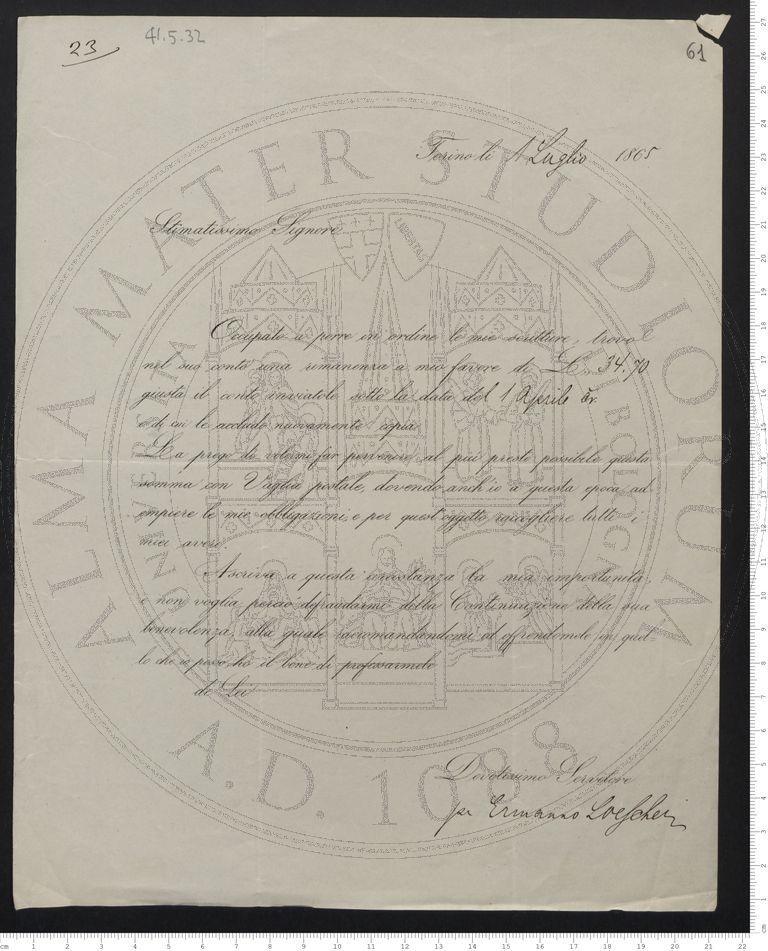 23
41.5.32
61
Torino li 1 Luglio 1865
Stimatissimo Signore
Occupato a porre in ordine le mie scritture, trovo
nel suo conto una rimanenza a mio favore di L. 34.70
giusta il conto inviatole sotto la data del 1 Aprile
e di cui le accludo nuovamente copia.
La prego di volermi far pervenire al più presto possibile questa
somma con Vaglia postale, dovendo anch'io a questa epoca ad-
empiere le mie obbligazioni, e per quest'oggetto raccogliere tutti i
miei averi.
Ascriva a questa circostanza la mia importunità,
e non voglia perciò defraudarmi della Continuazione della sua
benevolenza, alla quale raccomandandomi ed offrendomele in quel-
lo che io posso, ho il bene di professarmele
di Lei
Devotissimo Servitore
pr Ermanno Loescher
ALMA MATER STUDIORUM
A.D. 1088
LIBERTAS